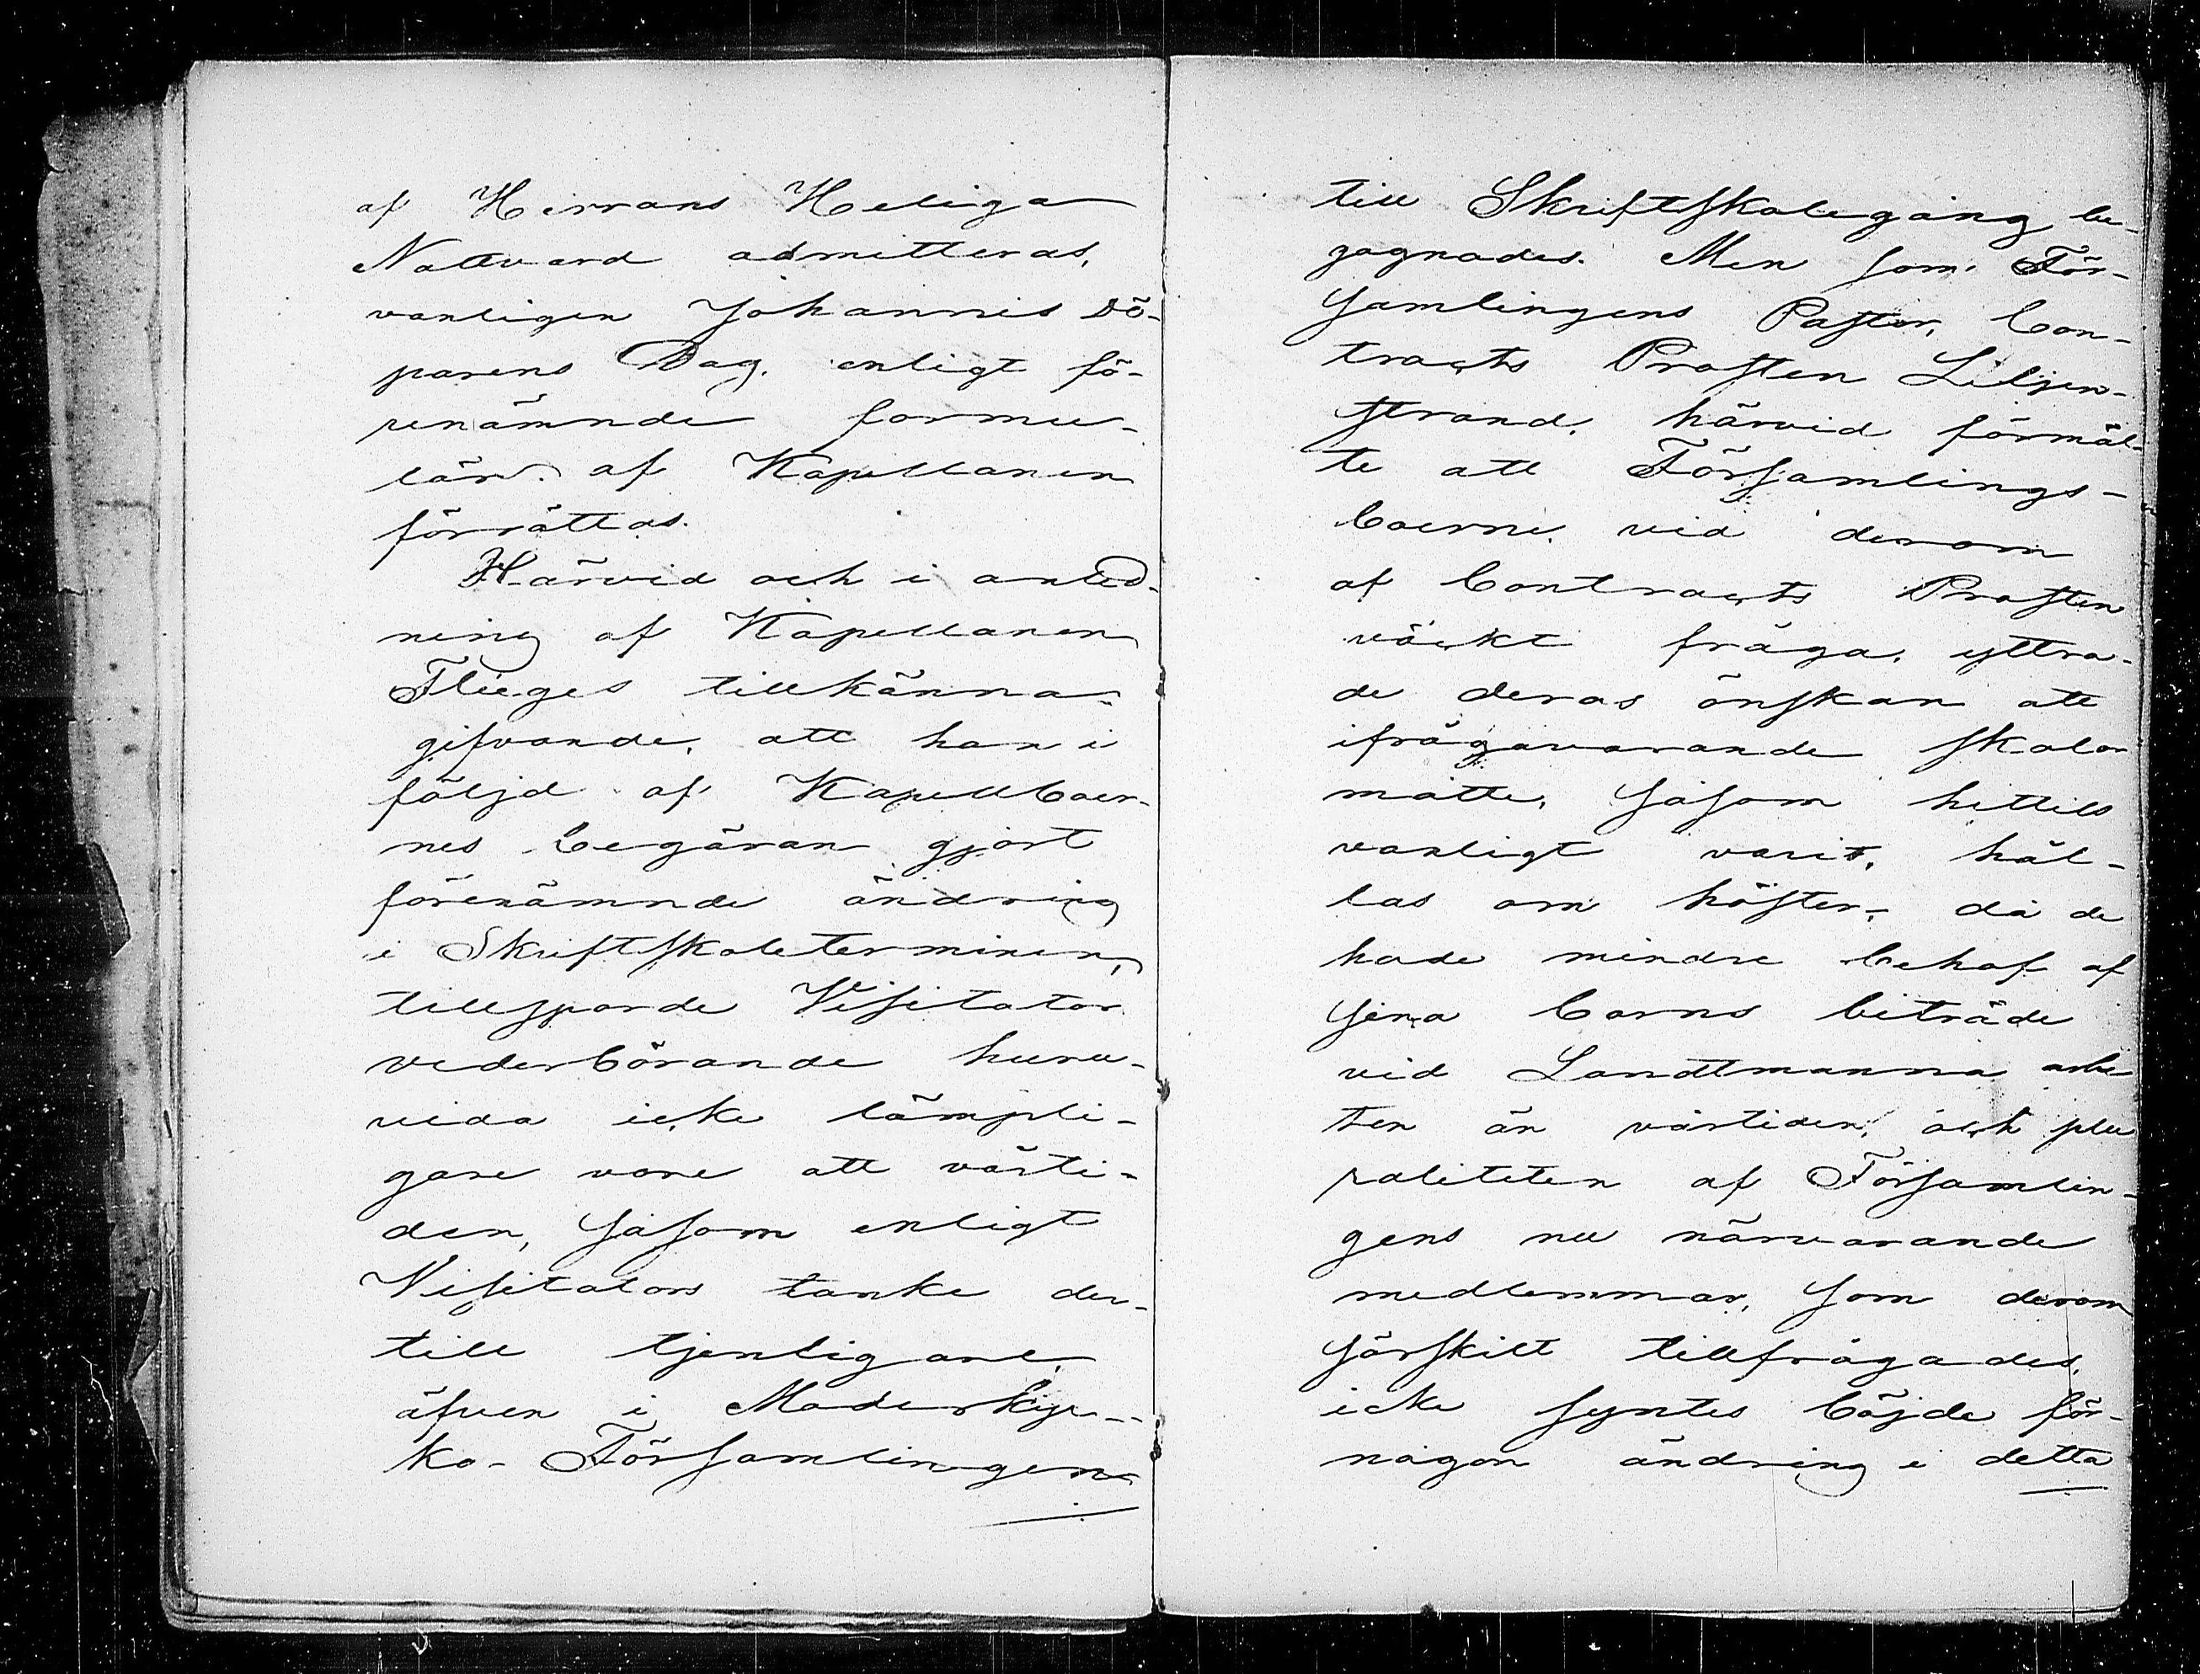 af Herrans Heliga
Nattvard admitteras,
vanligen Johannis Dö-
parens Dag, enligt fö-
renämnde formu-
lär af Kapellanen
förrättas.
Härvid och i anled-
ning af Kapellanen
Flieges tillkänna-
gifvande, att han i
följd af Kapellboer-
nes begäran gjort
förenämnde ändring
i Skriftskoleterminen,
tillsporde Visitator
vederbörande huru-
vida icke lämpli-
gare vore att vårti-
den, såsom enligt
Visitators tanke der-
till tjenligare,
äfven i Moderkyr-
ko-Församlingen
till Skriftskolegång be-
gagnades. Men som För-
samlingens Pastor, Con-
tracts Prosten Liljen-
strand, härvid förmäl-
te att Församlings-
boerne, vid derom
af Contracts Prosten
väckt fråga, yttra-
de deras önskan att
ifrågavarande skolor
måtte, såsom hittills
vanligt varit, hål-
las om höster, då de
hade mindre behof af
sina barns biträde
vid Landtmanna arbe-
ten än vårtiden, och plu
raliteten af Församlin-
gens nu närvarande
medlemmar, som derom
särskilt tillfrågades,
icke syntes böjde för
någon ändring i detta